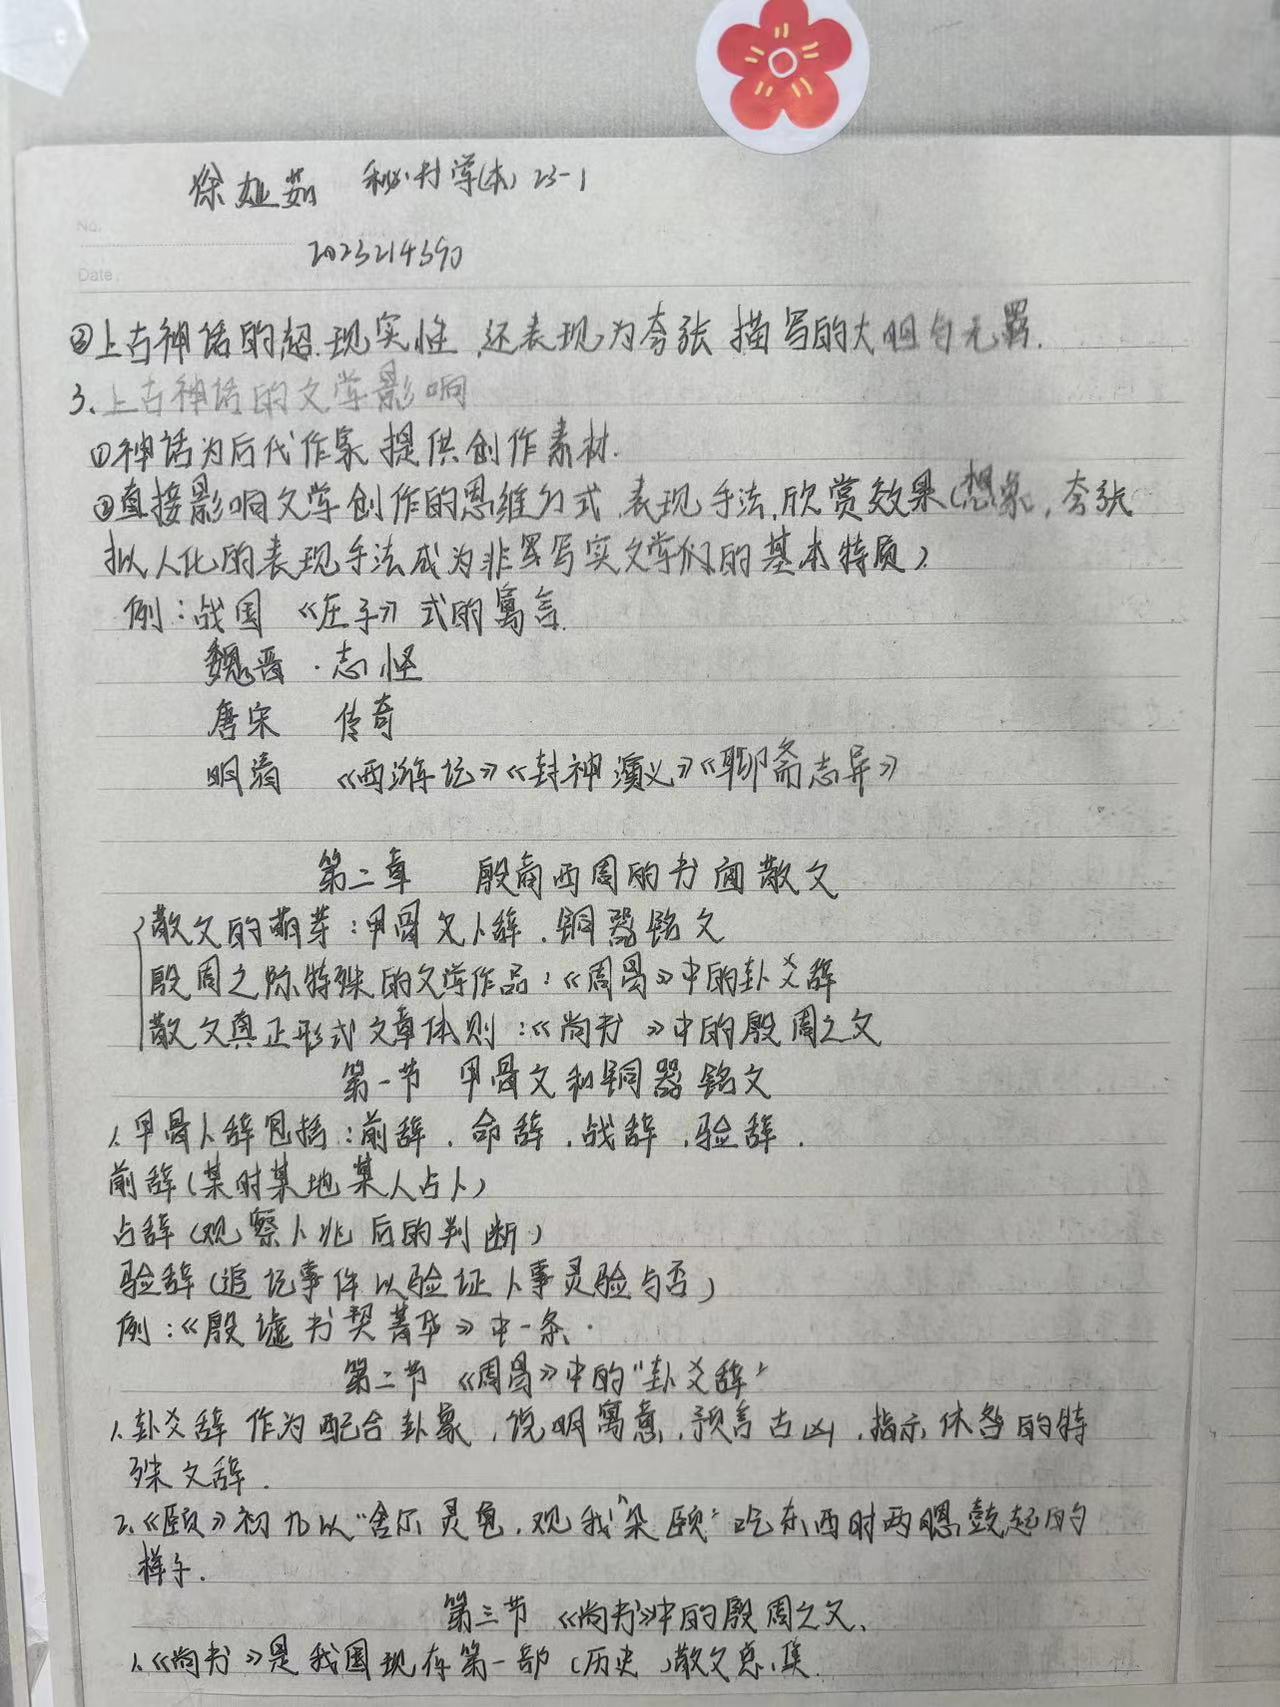 徐娅茹 秘书学(本) 23-1
No.
2023214390
Date.
②上古神话的超现实性,还表现为夸张描写的大胆与无羁.
3、上古神话的文学影响
①神话为后代作家提供创作素材.
②直接影响文学创作的思维方式,表现手法,欣赏效果(想象,夸张
拟人化的表现手法成为非写实文学的基本特质)
例:战国 《庄子》式的寓言.
魏晋 · 志怪
唐宋 传奇
明清 《西游记》《封神演义》《聊斋志异》
第二章 殷商西周的书面散文
散文的萌芽:甲骨文卜辞.铜器铭文
殷周之际特殊的文学作品:《周易》中的卦爻辞
散文真正形式文章体则:《尚书》中的殷周之文
第一节 甲骨文和铜器铭文
1.甲骨卜辞包括:前辞.命辞.战辞.验辞.
前辞(某时某地某人占卜)
占辞(观察卜兆后的判断)
验辞(追记事件以验证卜事灵验与否)
例:《殷墟书契菁华》中一条.
第二节 《周易》中的"卦爻辞"
1.卦爻辞作为配合卦象,说明寓意,预言吉凶,指示休咎的特
殊文辞.
2.《颐》初九以"舍尔灵龟,观我"朵颐"吃东西时两腮鼓起的
样子.
第三节 《尚书》中的殷周之文、
1.《尚书》是我国现存第一部(历史)散文总集.